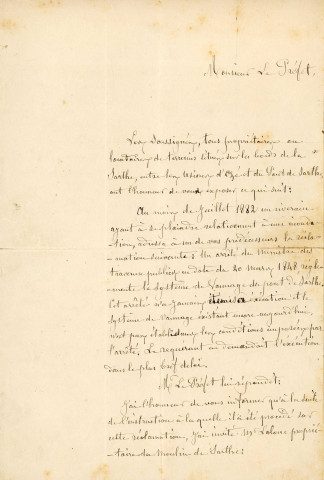 Monsieur Le Préfet.
Les Soussignés, tous propriétaires ou
locataires de terrains situés sur les bords de la
Sarthe, entre les Usines d' et du Pont de Sarthe,
ont l'honneur de vous exposer ce qui suit:
Au mois de Juillet 1882 un riverain
ayant à se plaindre relativement à une inonda-
tion, adressa à un de vos prédécesseurs la récla-
mation suivante: Un arrêté du Ministre des
travaux publics en date du 20 mars 1848 règle-
mente le système de Vannage du pont de Sarthe.
Cet arrêté n'a jamais exécution et le
système de vannage existant encore aujourd'hui,
n'est pas établi dans les conditions imposées par
l'arrêté. Le requérant en demandait l'exécution
dans le plus bref délai.
Mr Le Préfet lui répondit:
J'ai l'honneur de vous informer qu'à la suite
de l'instruction à laquelle il a été procédé sur
cette réclamation, j'ai invité Mr proprié-
taire du Moulin de Sarthe: